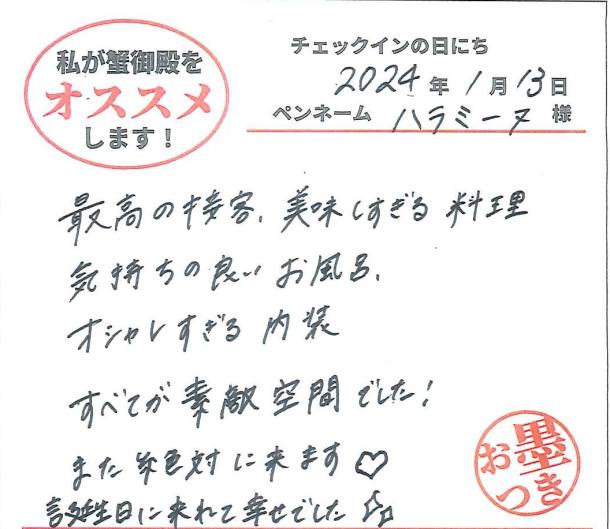 私が蟹御殿を
オススメ
します！
チェックインの日にち
2024年1月13日
ペンネーム ハラミーヌ 様
最高の接客、美味しすぎる料理
気持ちの良いお風呂、
オシャレすぎる内装
すべてが素敵空間でした！
また絶対に来ます♡
誕生日に来れて幸せでした
お墨つき